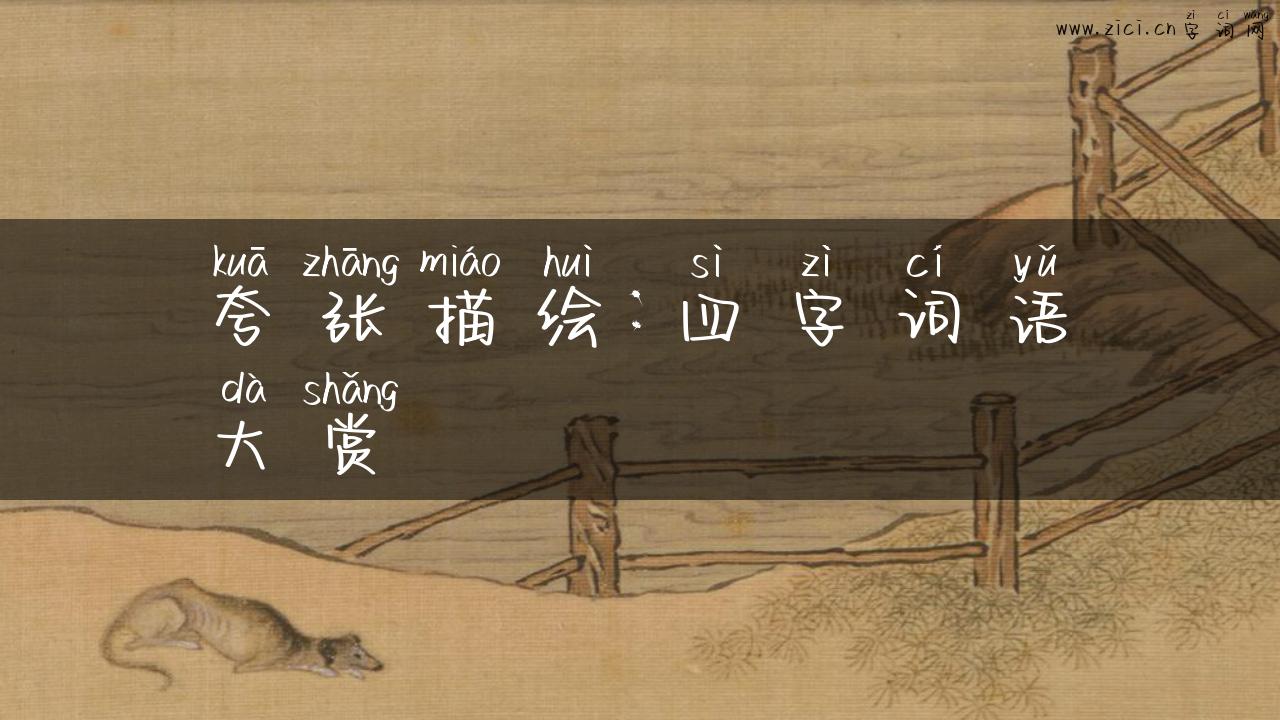 zì cí wǎng
www.zici.cn字词网
kuā zhāng miáo huì sì zì cí yǔ
夸张描绘：四字词语
dà shǎng
大赏